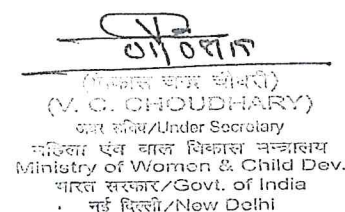 01/08/15
(विकास चन्द्र चौधरी)
(V. C. CHOUDHARY)
अवर सचिव/Under Secretary
महिला एंव बाल विकास मन्त्रालय
Ministry of Women & Child Dev.
भारत सरकार/Govt. of India
नई दिल्ली/New Delhi